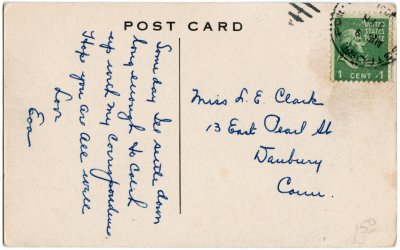 POST CARD
Some day I'll settle down
long enough to catch
up with my correspondence.
Hope you are all well
Lov
Eva
Miss L. E. Clark
13 East Pearl St
Danbury
Conn.
UNITED
STATES
1 CENT 1
15¢